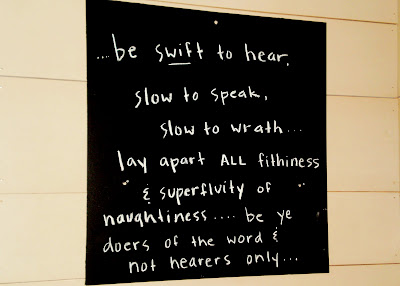 ....be swift to hear,
slow to speak,
slow to wrath...
lay apart ALL filthiness
& superfluity of
naughtiness.... be ye
doers of the word &
not hearers only...